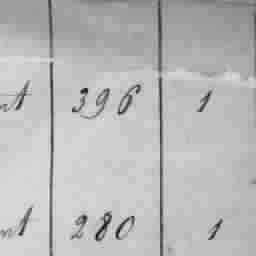 nt 396 1
nt 280 1